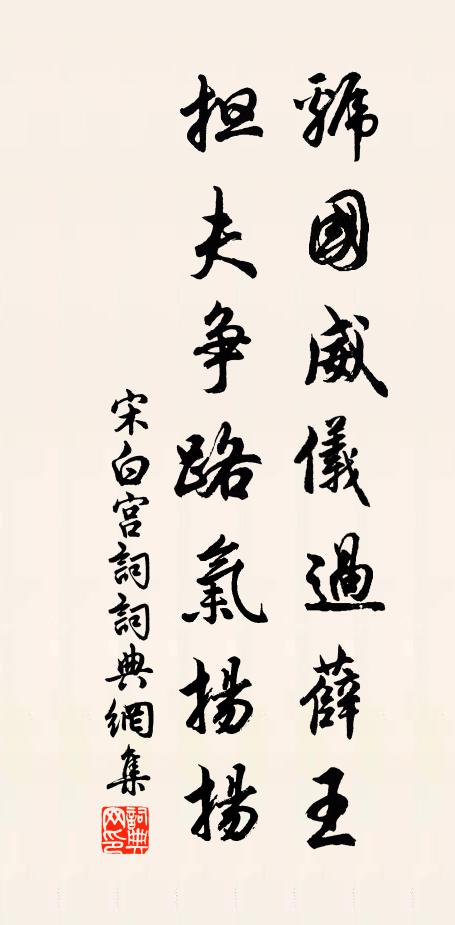 虢國威儀過薛王
担夫争路氣揚揚
宋白宫詞詞典網集
詞典网印